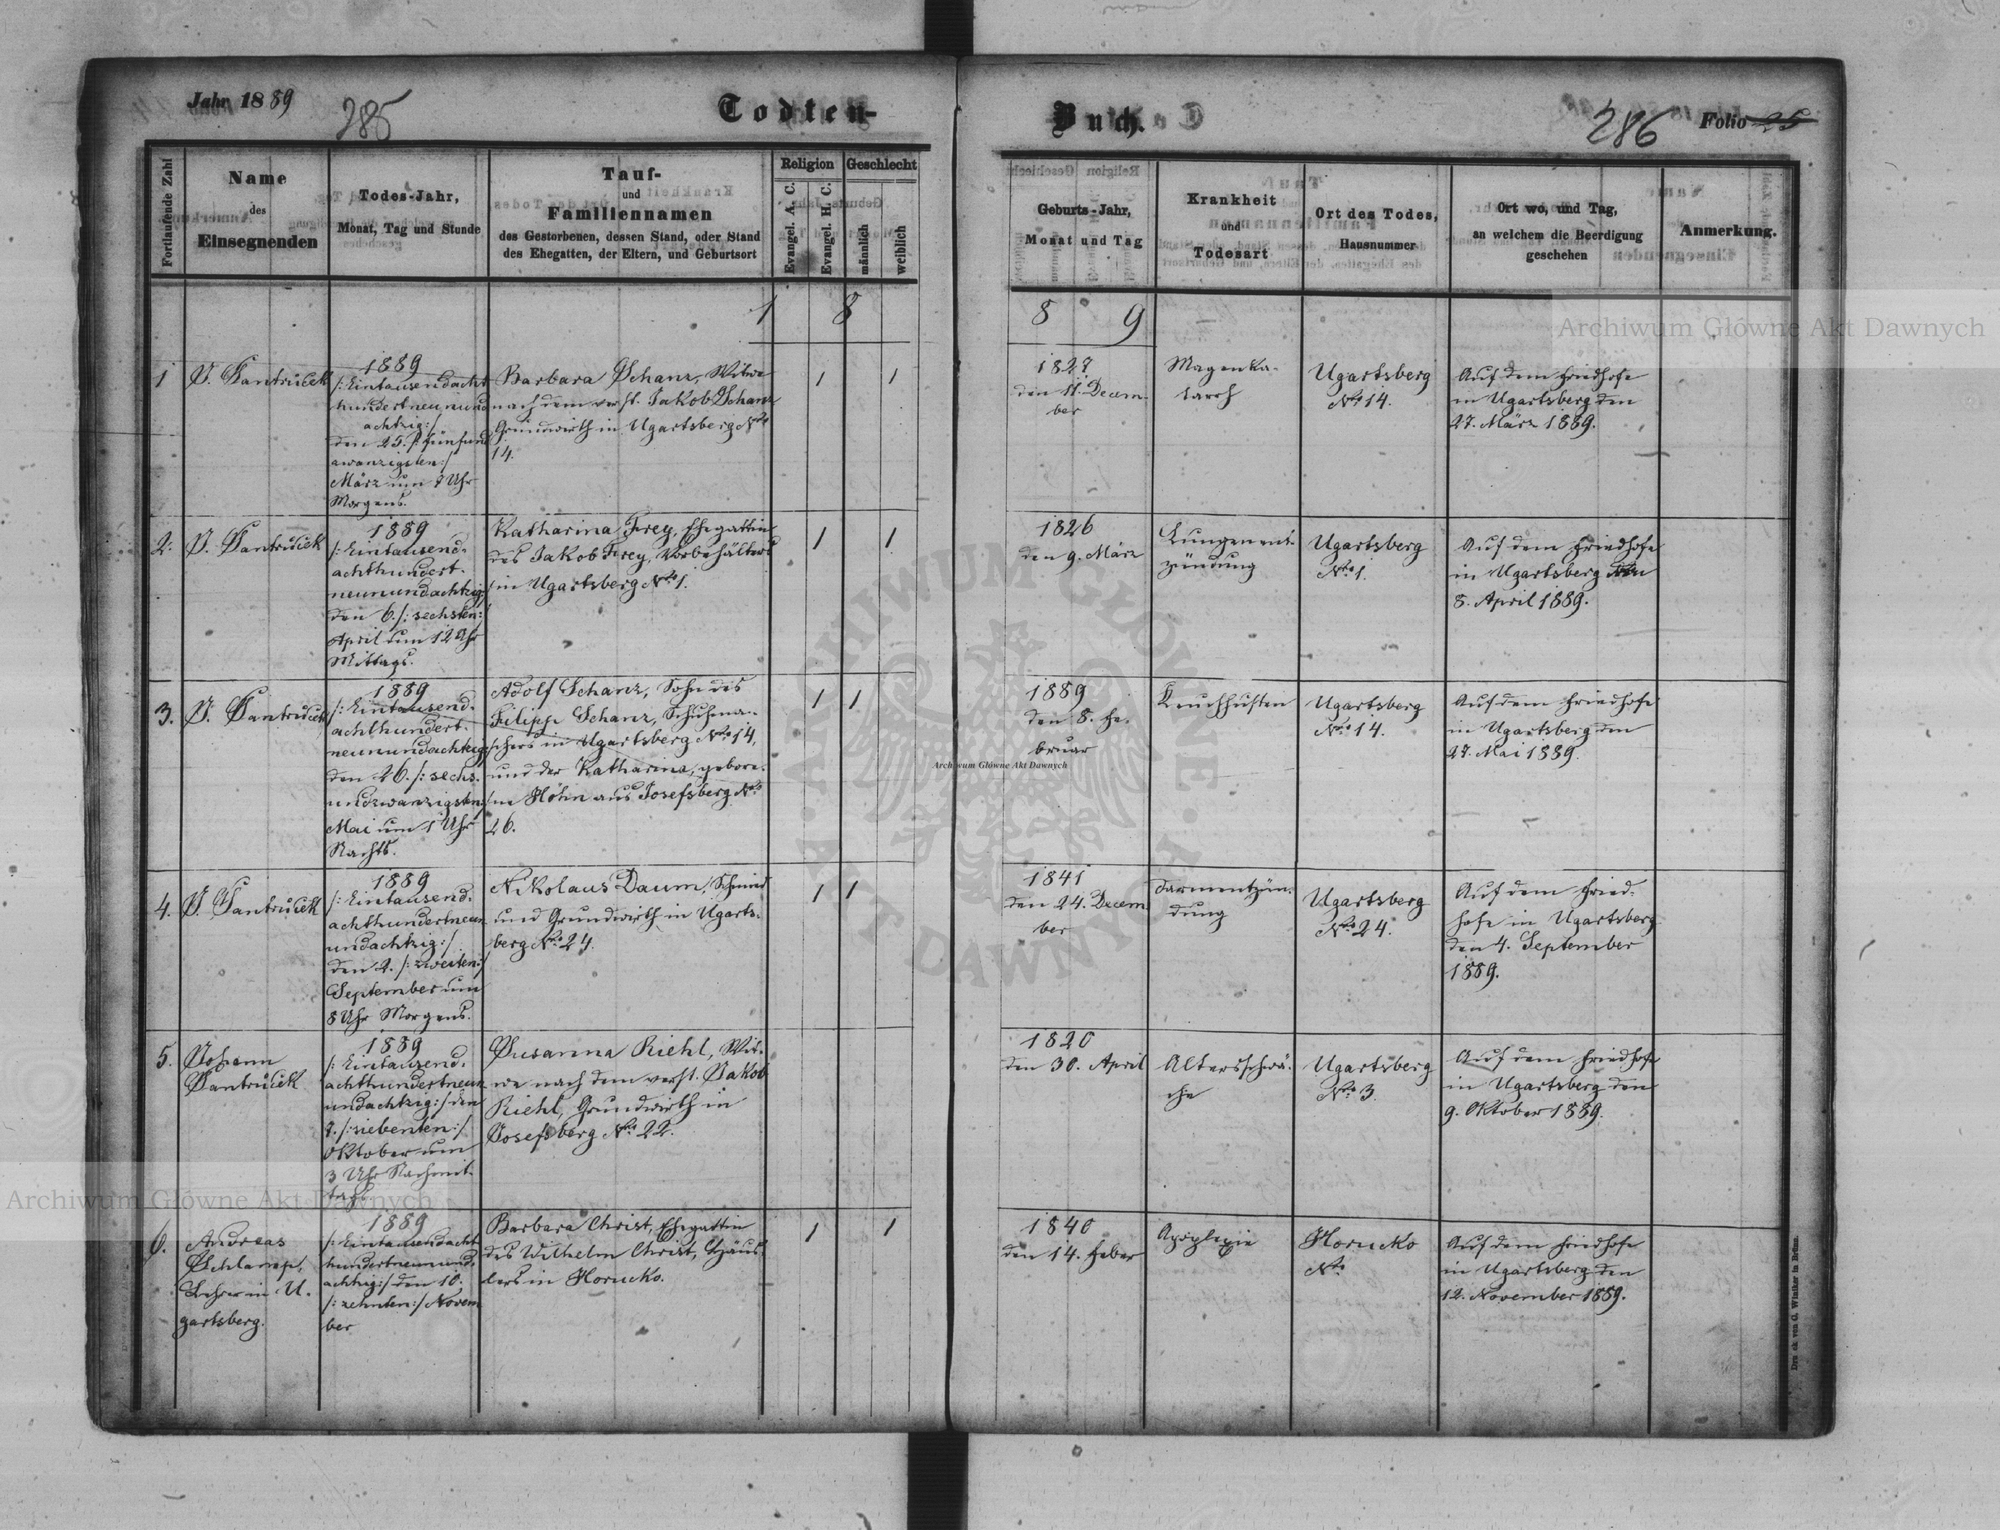 Jahr 1889
285
Todten-
Buch.
286
Folio 25
Fortlaufende Zahl
Name
des
Einsegnenden
Todes-Jahr,
Monat, Tag und Stunde
Tauf-
und
Familiennamen
des Gestorbenen, dessen Stand, oder Stand
des Ehegatten, der Eltern, und Geburtsort
Religion
Evangel. A. C.
Evangel. H. C.
Geschlecht
männlich
weiblich
Geburts-Jahr,
Monat und Tag
Krankheit
und
Todesart
Ort des Todes,
Hausnummer
Ort wo, und Tag,
an welchem die Beerdigung
geschehen
Anmerkung.
1 8
8 9
1
J. Hantruček
1889
/:Eintausendacht
hundertneunund
achtzig:/
den 25. /:fünfund
zwanzigsten:/
März um Uhr
Morgens.
Barbara Schanz, Witwe
nach dem verst. Jakob Schanz
Grundwirth in Ugartsberg Nro
14.
1 1
1827
den 11. Decem-
ber
Magenka-
tarrh
Ugartsberg
Nro 14.
Auf dem Friedhofe
in Ugartsberg den
27. März 1889.
2.
J. Hantruček
1889
/:Eintausend-
achthundert-
neunundachtzig
den 6. /:sechsten:/
April um 12 Uhr
Mittags.
Katharina Frey, Ehegattin
des Jakob Frey, Vorbehälters
in Ugartsberg Nro 1.
1 1
1826
den 9. März
Lungenent-
zündung
Ugartsberg
Nro 1.
Auf dem Friedhofe
in Ugartsberg den
8. April 1889.
3.
J. Hantruček
1889
/:Eintausend-
achthundert-
neunundachtzig
den 26. /:sechs-
undzwanzigsten:/
Mai um 1 Uhr
Nachts.
Adolf Schanz, Sohn des
Filipp Schanz, Schuhma-
chers in Ugartsberg Nro 14,
und der Katharina, gebore-
ne Höhn aus Josefsberg Nro
26.
1 1
1889
den 8. Fe-
bruar
Keuchhusten
Ugartsberg
Nro 14.
Auf dem Friedhofe
in Ugartsberg den
27. Mai 1889.
4.
J. Hantruček
1889
/:Eintausend-
achthundertneun
undachtzig:/
den 2. /:zweiten:/
September um
8 Uhr Morgens.
Nikolaus Daum, Schmied
und Grundwirth in Ugarts-
berg Nro 24.
1 1
1841
den 24. Decem
ber
Darmentzün-
dung
Ugartsberg
Nro 24.
Auf dem Fried-
hofe in Ugartsberg
den 4. September
1889.
5.
Johann
Hantruček
1889
/:Eintausend-
achthundertneun
undachtzig:/ den
7. /:siebenten:/
Oktober um
3 Uhr Nachmit-
tags
Susanna Riehl, Wit-
we nach dem verst. Jakob
Riehl, Grundwirth in
Josefsberg Nro 22.
1820
den 30. April
Altersschwä-
che
Ugartsberg
Nro 3.
Auf dem Friedhofe
in Ugartsberg den
9. Oktober 1889.
6.
Andreas
Schlamp,
Lehrer in U-
gartsberg.
1889
/:Eintausendacht
hundertneunund-
achtzig:/ den 10.
/:zehnten:/ Novem
ber
Barbara Christ, Ehegattin
des Wilhelm Christ, Häus-
lers in Horucko.
1 1
1840
den 14. Feber
Apoplexie
Horucko
Nro
Auf dem Friedhofe
in Ugartsberg den
12. November 1889.
Druck von G. Winiker in Brünn.
Archiwum Główne Akt Dawnych
Archiwum Główne Akt Dawnych
Archiwum Główne Akt Dawnych
ARCHIWUM GŁÓWNE AKT DAWNYCH